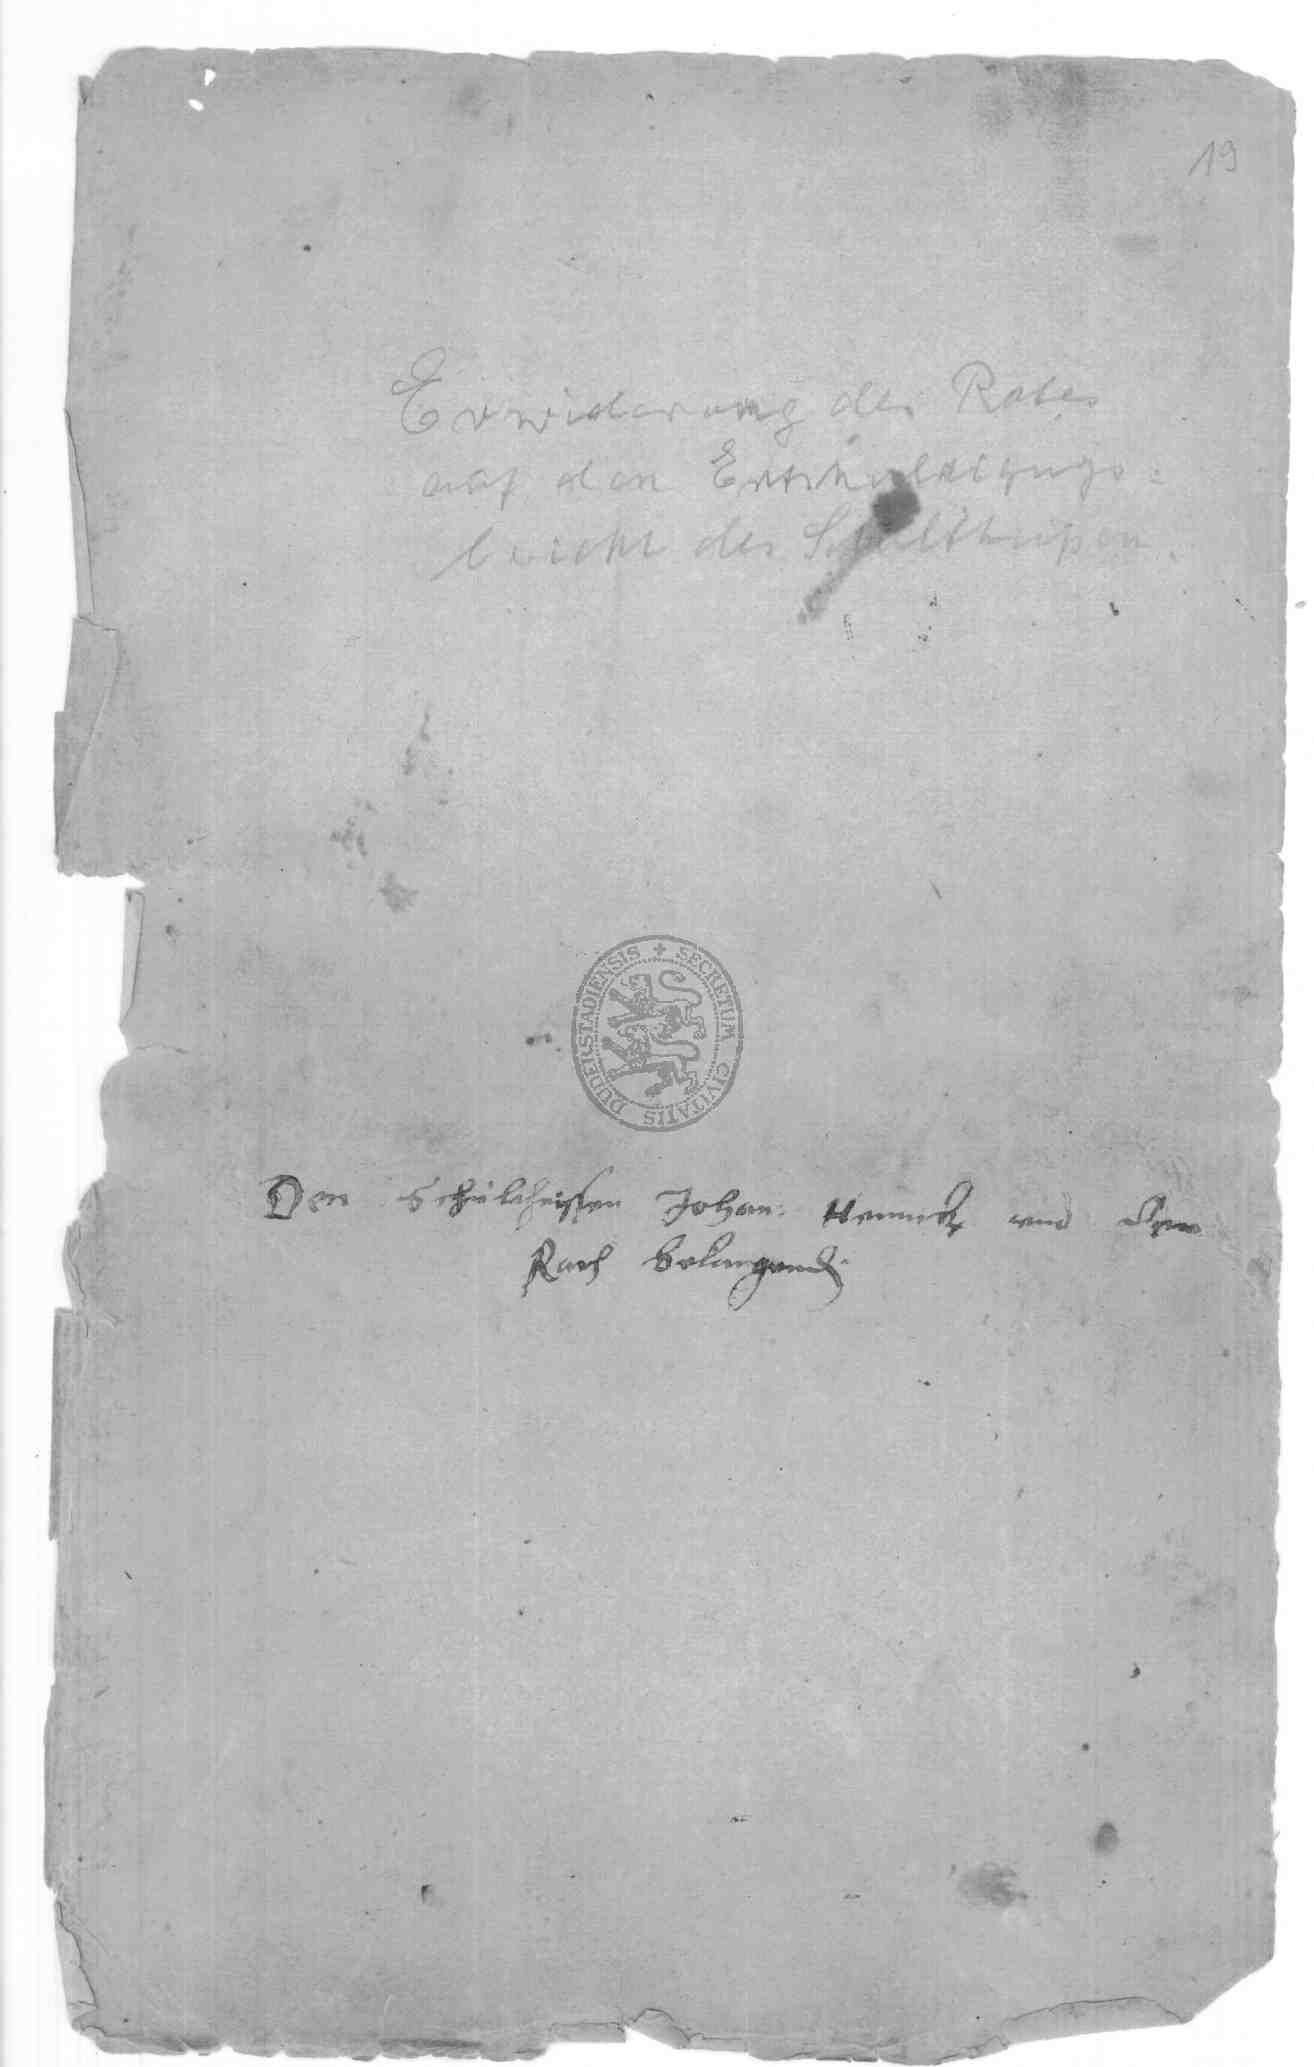 19
Erwiderung des Rates
auf den Entschuldigungs-
bericht des Schultheißen.
SECRETUM CIVITATIS DUDERSTADIENSIS
Den Schultheissen Johan: und den
Rath belangend.